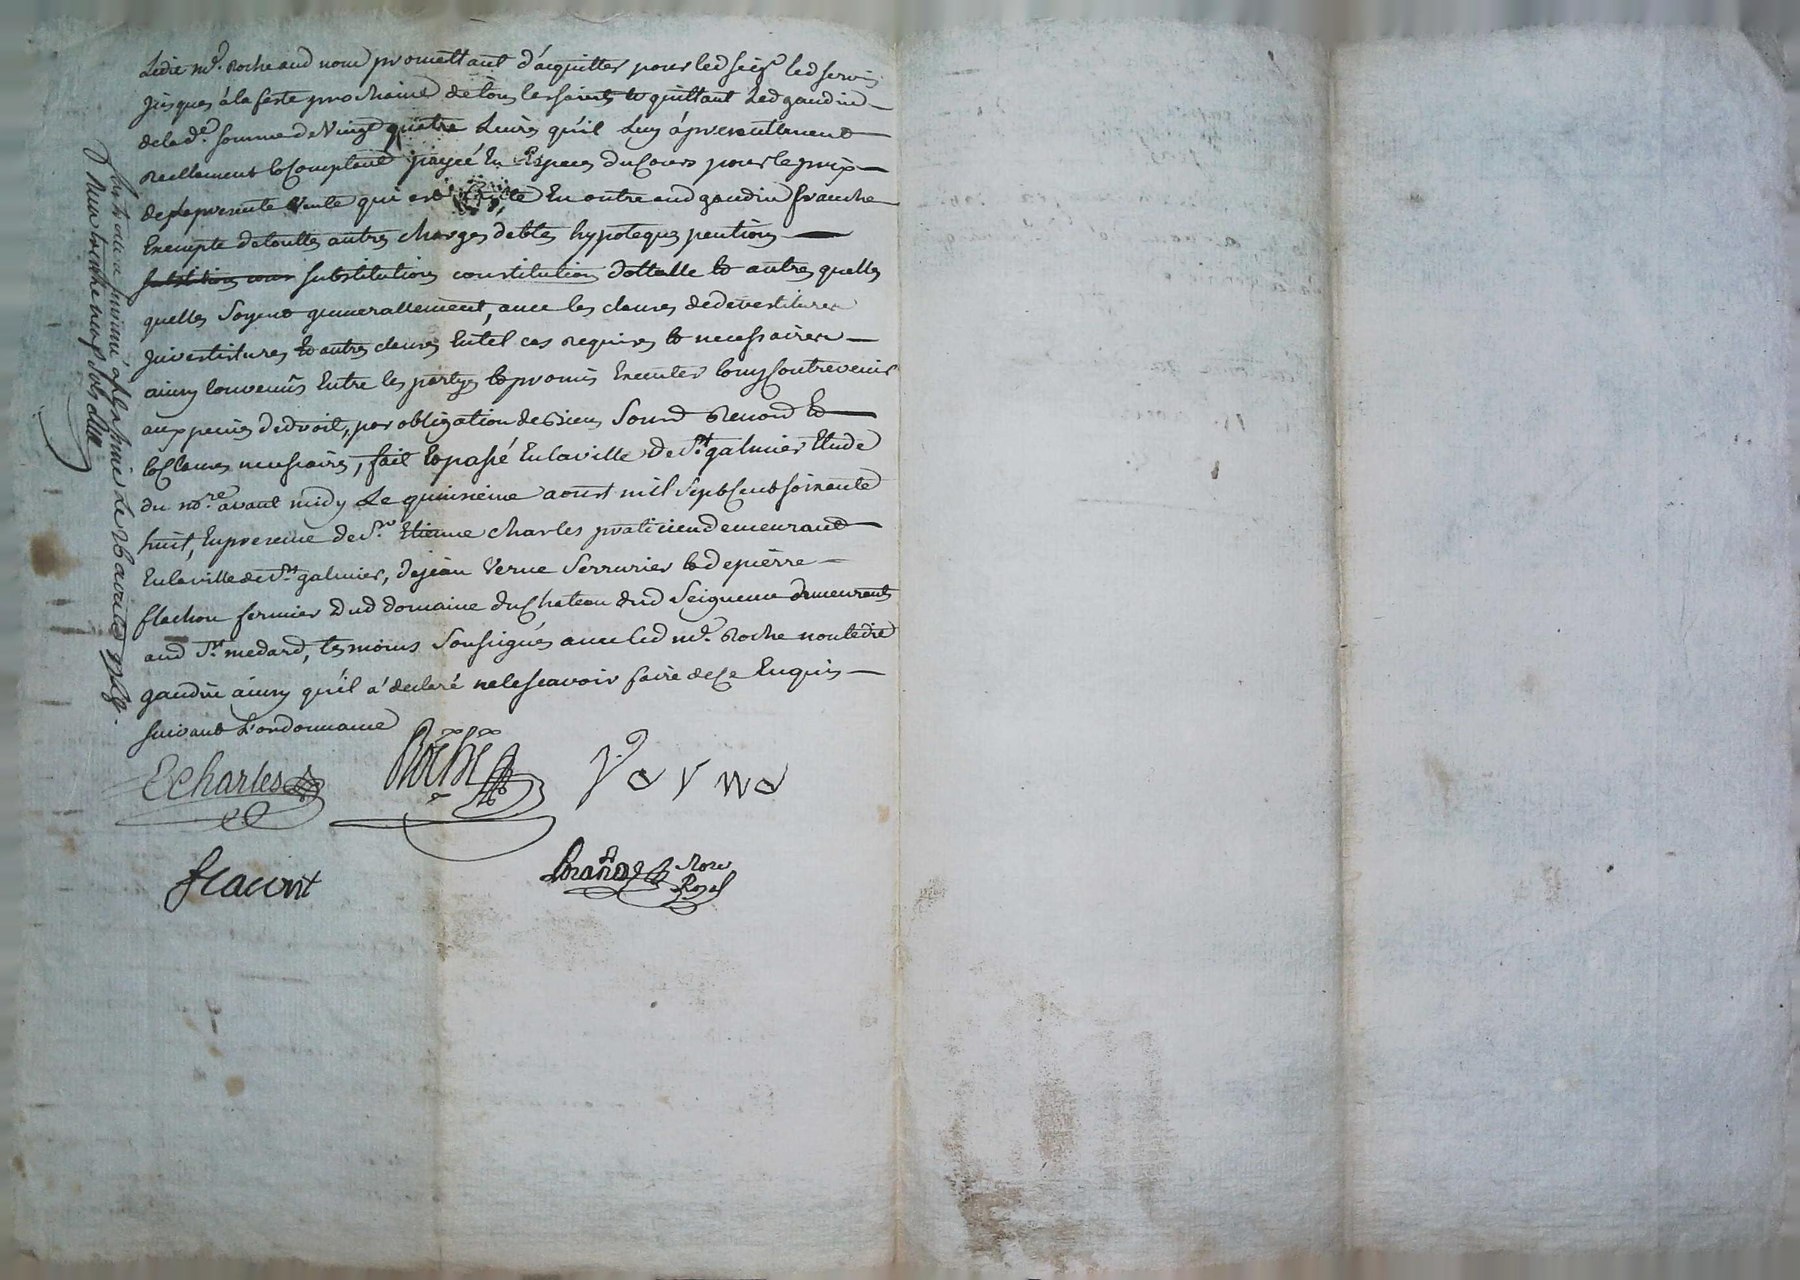 Ledit me. Roche aud nom promettant d'acquitter pour led seigr. led servis
jusques à la feste prochaine de tous les saints et quittant led gaudin
de lad. somme de Vingt quatre Livres qu'il luy à presentement
reellement et Comptant payée En Especes du Cours pour le prix
de la presente Vente qui est faitte En outre aud gaudin franche
Exempte de touttes autres charges debtes hypoteques pentions
substitutions constitution dottalle et autres quelles
quelles soyent generallement, avec les clauses de devestitures
jnvestitures et autres clauses En tel cas requises et necessaires
ainsy Convenûs Entre les partyes et promis Executer et ny Contrevenir
aux peines de droit, par obligation de Biens soumd Renond et
les Clauses necessaires, fait et passé En la ville de St. galmier Etude
du nore. avant midy Le quinzieme aoust mil sept Cent soixante
huit, En presence de Sr. Etienne Charles praticien demeurant
En la ville de St. galmier, de jean Verne serrurier et de pierre
flachon fermier dud domaine du Chateau dud Seigneur demeurants
aud St. medard, tesmoins soussignés avec led me. Roche non ledit
gaudin ainsy qu'il a declaré ne le scavoir faire de ce Enquis
suivant L'ordonnance
ECharles Roche
Nore
Royal